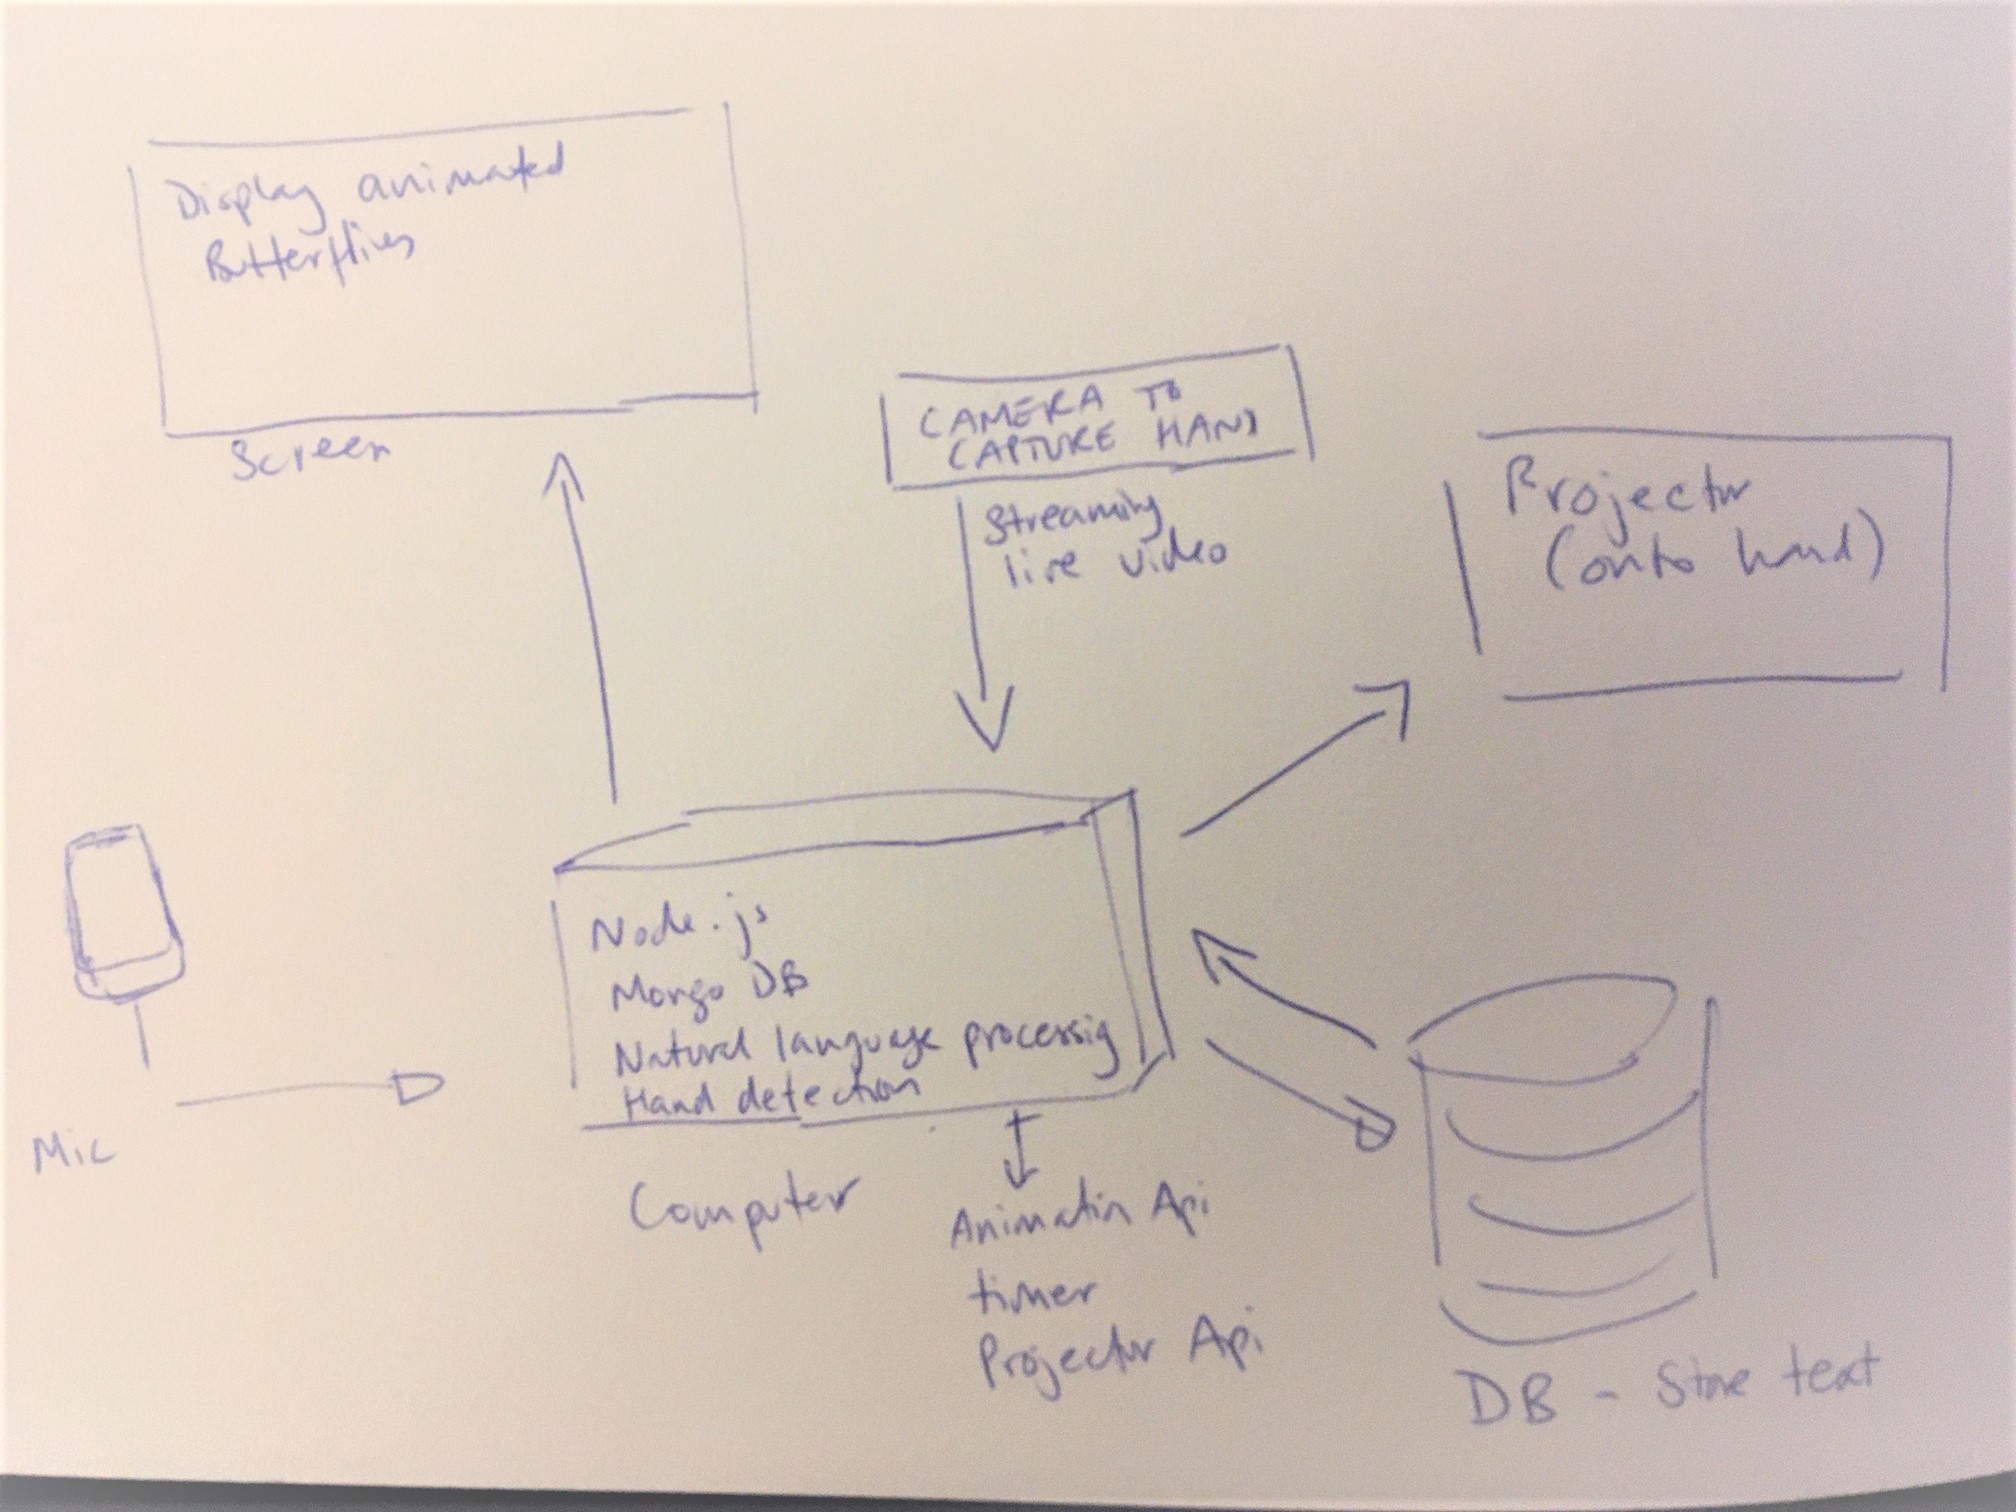 Display animated
Butterflies
Screen
CAMERA TO
CAPTURE HAND
Streaming
live video
Projector
(onto hand)
Mic
Node.js
Mongo DB
Natural language processig
Hand detection
Computer
Animatin Api
timer
Projector Api
DB - Store text